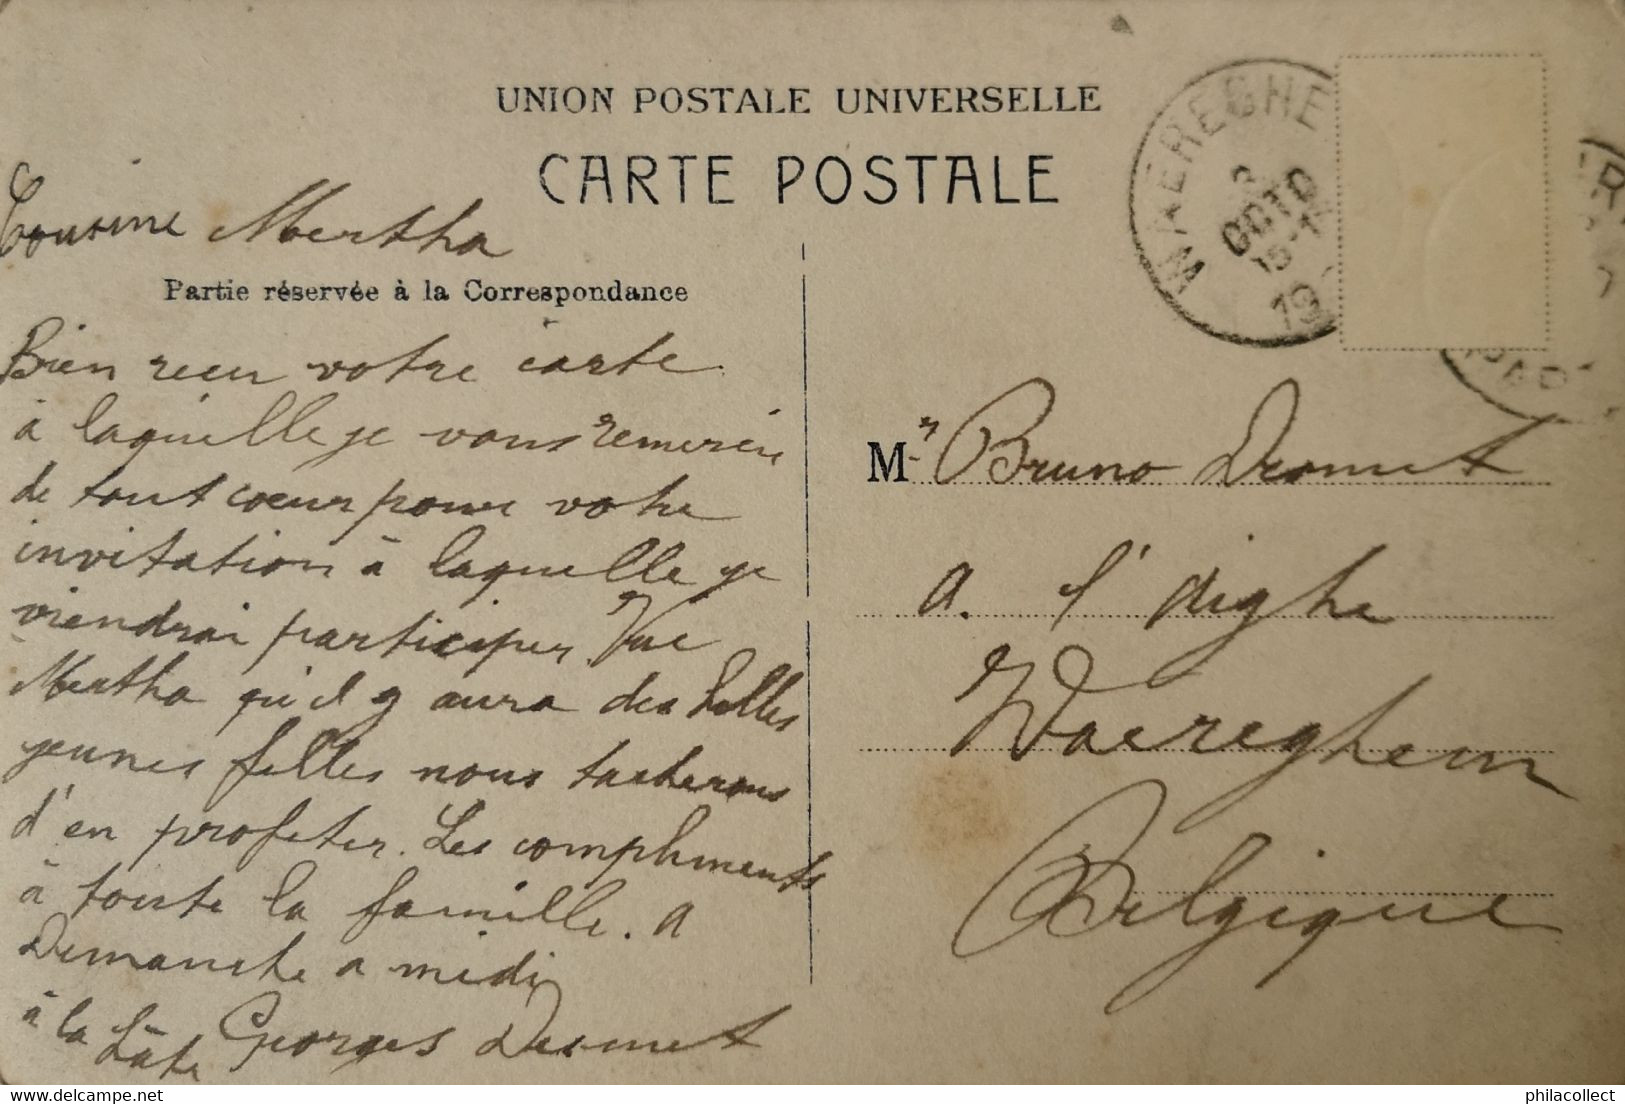 UNION POSTALE UNIVERSELLE
CARTE POSTALE
WAEREGHE
OCTO
15-1
19
Cousine Mertha
Partie réservée à la Correspondance
Bien recu votre carte
à laquelle je vous remercie
de tout cœur pour votre
invitation à laquelle je
viendrai participer.
Mertha qu'il y aura des belles
jeunes filles nous tacherons
d'en profeter. Les compliments
à toute la famille. a
Demanche a midi
à la
Georges Desmet
Mr Bruno Desmet
a. l'aighe
Waereghem
Belgique
philacollect